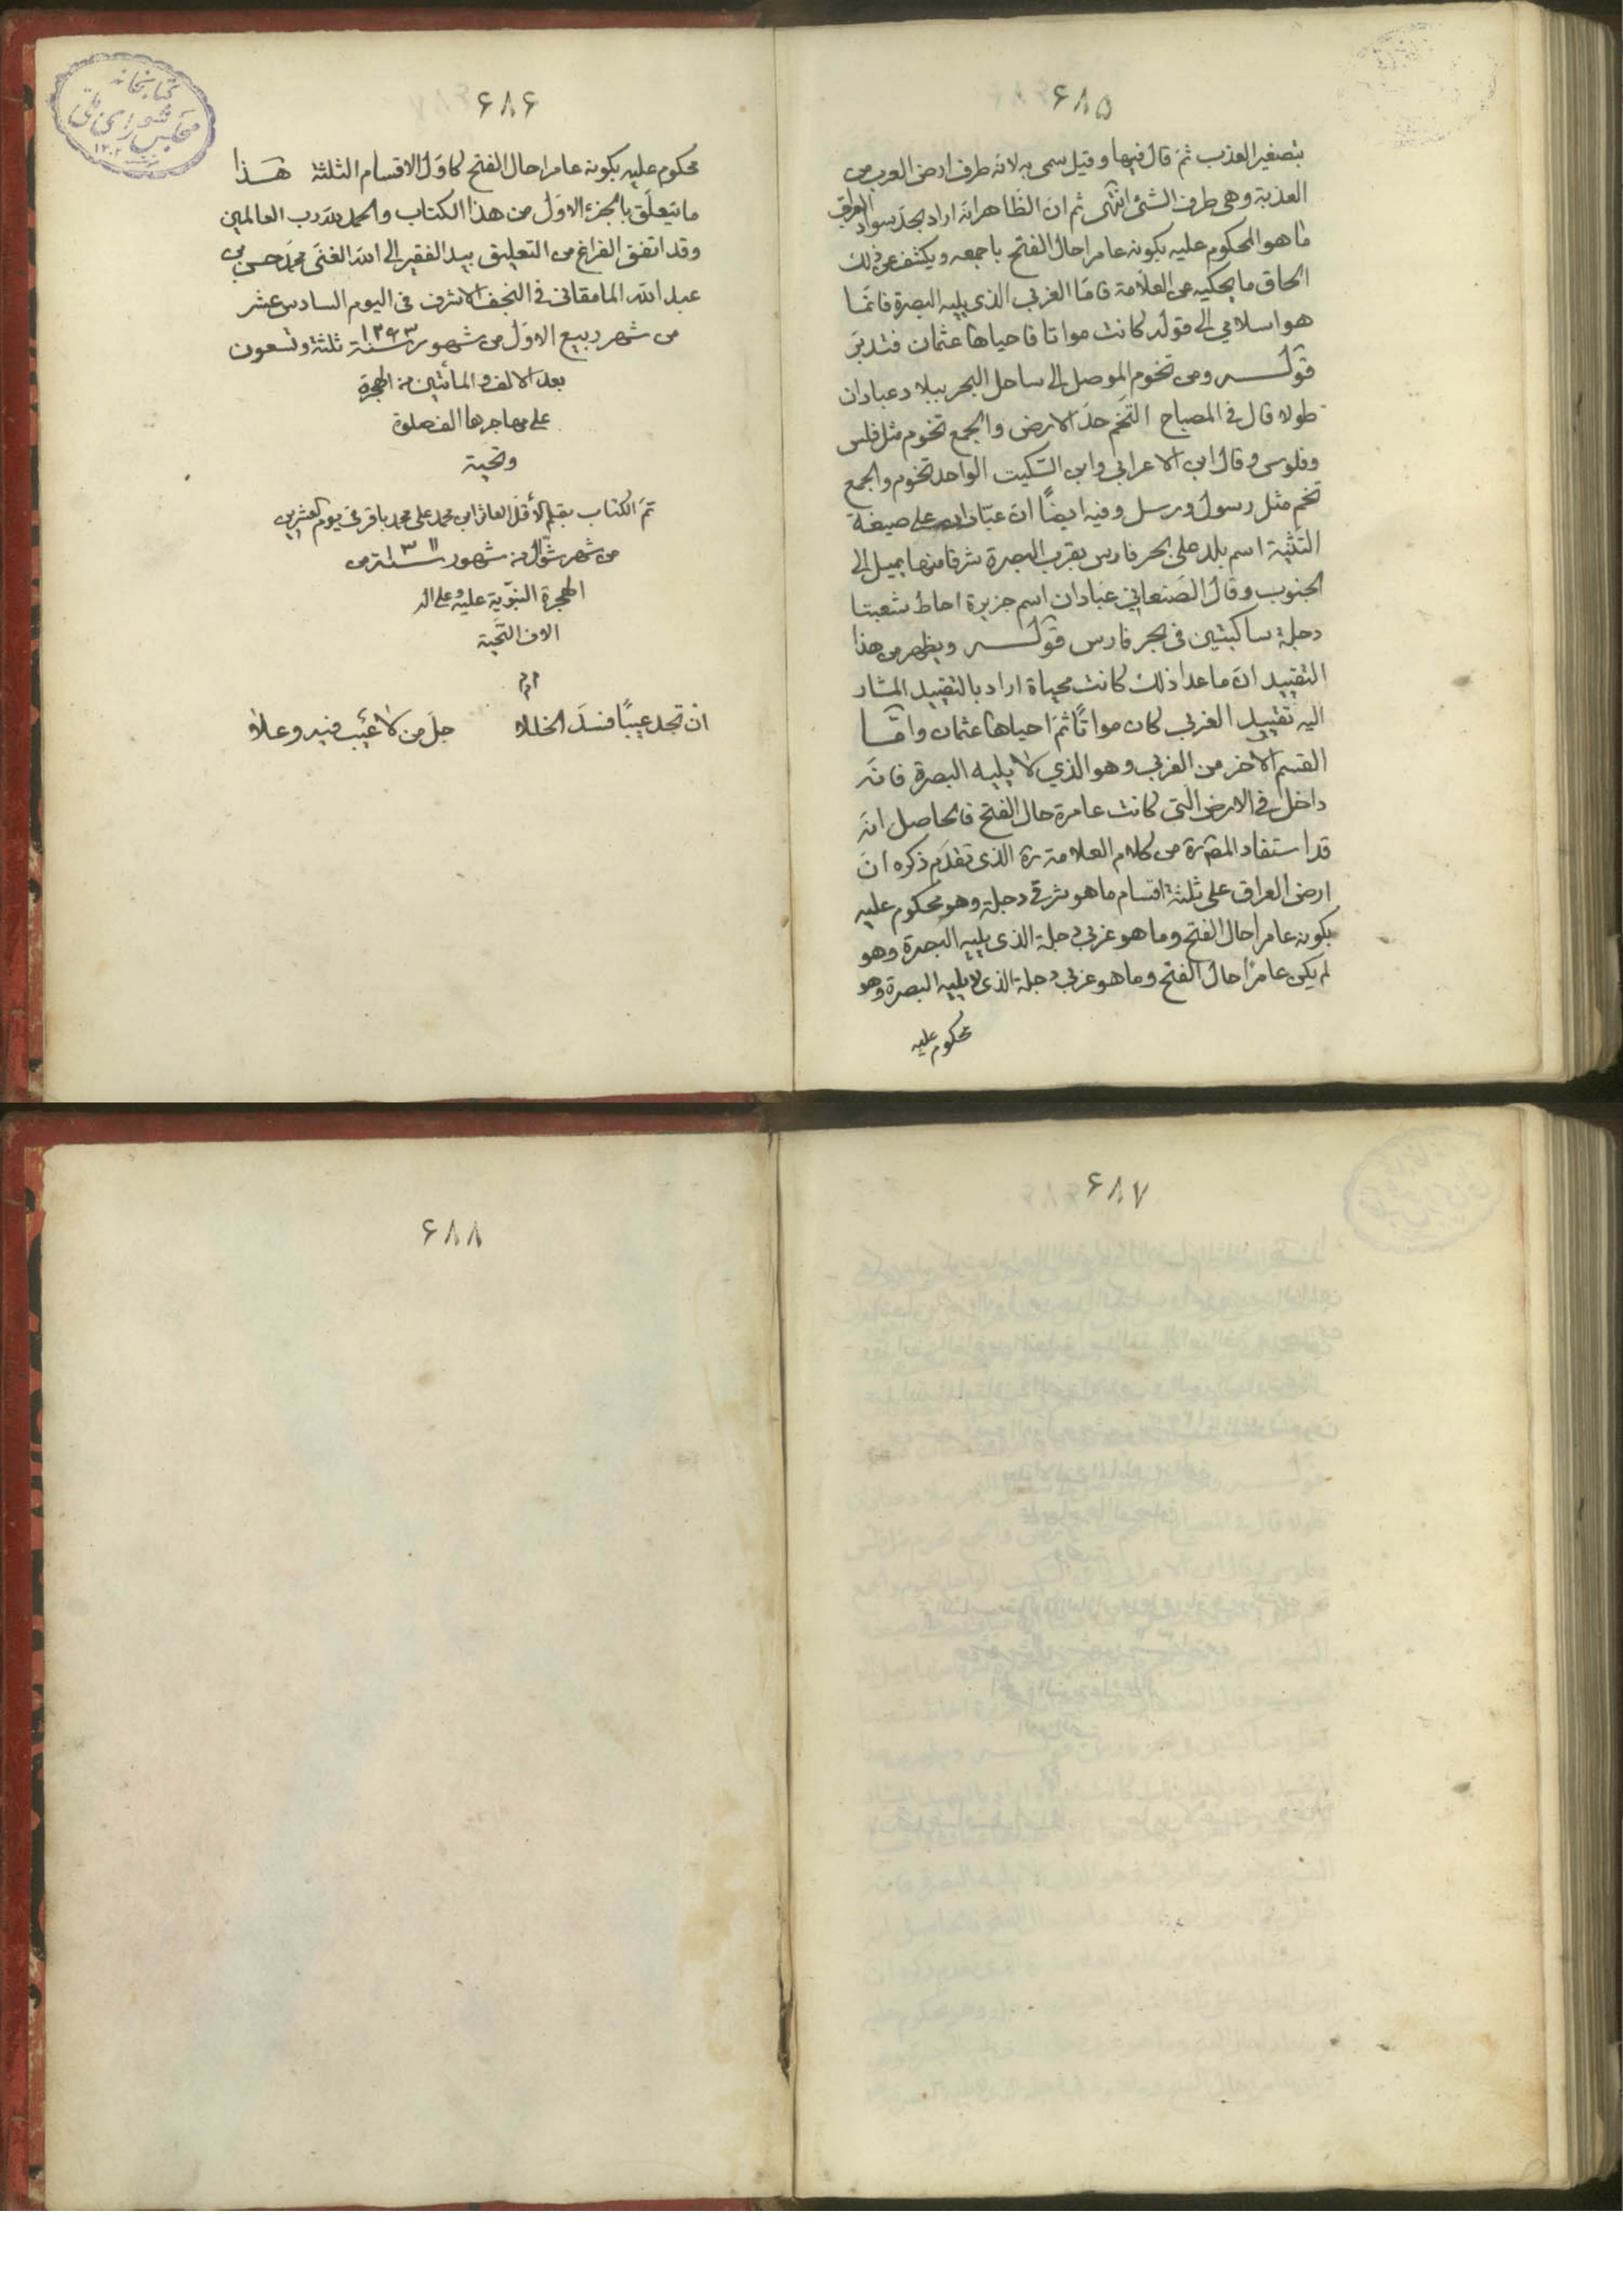 ۶۸۵
بتصغير العذب ثم قال فيها وقيل سمى به لانه طرف ارض العرب من
العذبة وهى طرف الشئ انتهى ثم ان الظاهر انه اراد بحد سواد العراق
ما هو المحكوم عليه بكونه عامرا حال الفتح باجمعه ويكشف عن ذلك
الحاق ما يحكيه عن العلامة فاما الغربي الذى يليه البصرة فانما
هو اسلامي الى قوله كانت مواتا فاحياها عثمان فتدبر
قوله ومن تخوم الموصل الى ساحل البحر ببلاد عبادان
طولا قال فى المصباح التخم حد الارض والجمع تخوم مثل فلس
وفلوس وقال ابن الاعرابي وابن السكيت الواحد تخوم والجمع
تخم مثل رسول ورسل وفيه ايضًا ان عبادان على صيغة
التثنية اسم بلد على بحر فارس بقرب البصرة شرقا منها يميل الى
الجنوب وقال الصنعاني عبادان اسم جزيرة احاط شعبتا
دجلة ساكبتين فى بحر فارس قوله ويظهر من هذا
التقييد ان ما عدا ذلك كانت محياة اراد بالتقييد المشار
اليه تقييد الغربي كان مواتًا ثم احياها عثمان واما
القسم الاخر من الغربي وهو الذي لا يليه البصرة فانه
داخل فى الارض التى كانت عامرة حال الفتح فالحاصل انه
قد استفاد المص ره من كلام العلامة ره الذى تقدم ذكره ان
ارض العراق على ثلثة اقسام ما هو شرقي دجلة وهو محكوم عليه
بكونه عامرا حال الفتح وما هو غربي دجلة الذى يليه البصرة وهو
لم يكن عامرًا حال الفتح وما هو غربي دجلة الذى لا يليه البصرة وهو
محكوم عليه
۶۸۶
كتابخانه
مجلس شوراى ملى
محكوم عليه بكونه عامرا حال الفتح كاول الاقسام الثلثة هذا
ما يتعلق بالجزء الاول من هذا الكتاب والحمد لله رب العالمين
وقد اتفق الفراغ من التعليق بيد الفقير الى الله الغنى محمد حسن بن
عبد الله المامقانى فى النجف الاشرف فى اليوم السادس عشر
من شهر ربيع الاول من شهور سنة ۱۲۹۳ ثلثة وتسعون
بعد الالف والمأتين من الهجرة
على مهاجرها الف صلوة
وتحية
تم الكتاب بقلم الأقل العاثر ابن محمد على محمد باقر فى يوم العشرين
من شهر شوال من شهور سنة ۱۳۱۱ من
الهجرة النبوية عليه وعلى اله
الاف التحية
ان تجد عيبًا فسد الخللا جل من لا عيب فيه وعلا
۶۸۷
۶۸۸